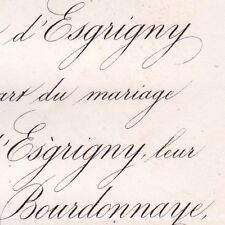 d'Esgrigny
art du mariage
d'Esgrigny, leur
Bourdonnaye,